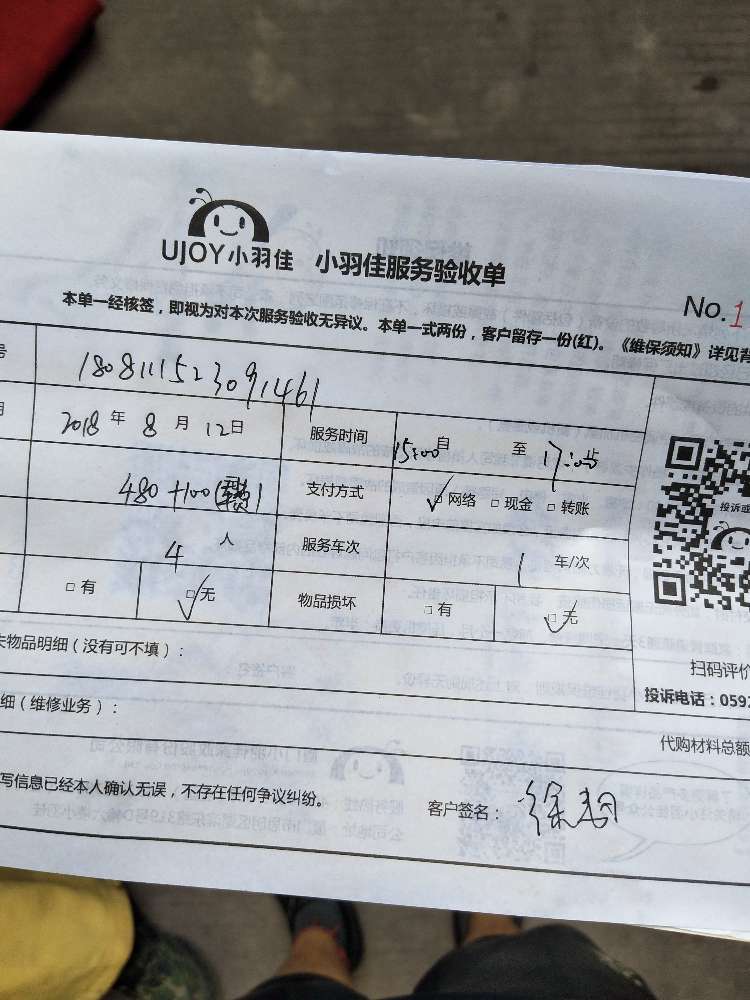 UJOY小羽佳 小羽佳服务验收单
No.1
本单一经核签，即视为对本次服务验收无异议。本单一式两份，客户留存一份(红)。《维保须知》详见背
号 1808111523091461
月 2018年8月12日 服务时间 15:00 自 至 17:00 止
480+100( ) 支付方式 □网络 □现金 □转账
4 人 服务车次 1 车/次
□有 □无 物品损坏 □有 □无
投诉或
扫码评价
失物品明细（没有可不填）：
投诉电话：0592
细（维修业务）：
代购材料总额
写信息已经本人确认无误，不存在任何争议纠纷。
客户签名：徐